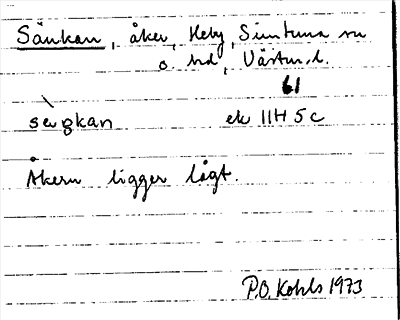 Sänkan, åker, Heby, Simtuna sn
o. hd, Västm.l.
61
sèŋkan ek 11H 5c
Åkern ligger lågt.
P.O. Kohls 1973